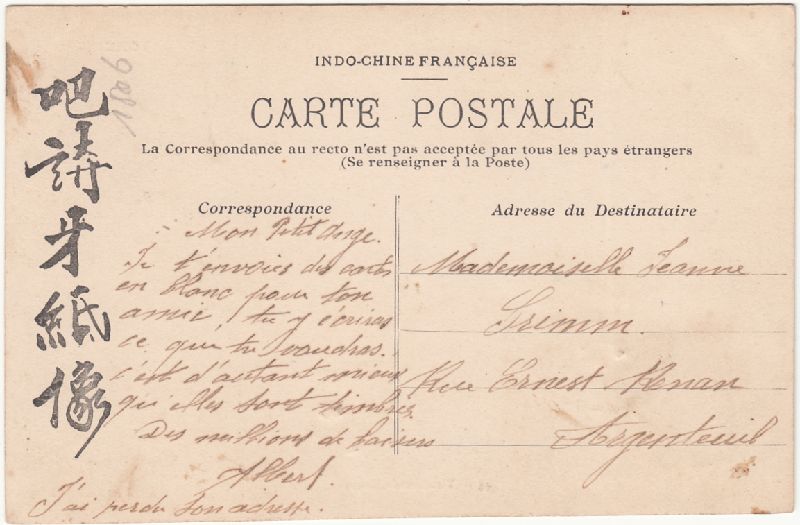 INDO-CHINE FRANÇAISE
CARTE POSTALE
La Correspondance au recto n'est pas acceptée par tous les pays étrangers
(Se renseigner à la Poste)
吧請牙紙像
1809
Correspondance
Mon Petit Ange.
Je t'envoies des cartes
en blanc pour ton
amie, tu y écriras
ce que tu voudras.
c'est d'autant mieux
qu'elles sont timbrées
Des millions de baisers
Albert.
J'ai perdu son adresse.
Adresse du Destinataire
Mademoiselle Jeanne
Grimm.
Rue Ernest Renan
Argenteuil